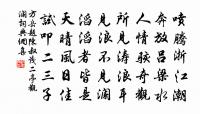 噴騰浙江潮
奔放呂梁水
人情駭奇觀
所見濤浪耳
見浪不見瀾
滔滔者皆是
天晴風日佳
試叩二三子
方岳趙陳叔茂二亭觀
瀾詞典網喜